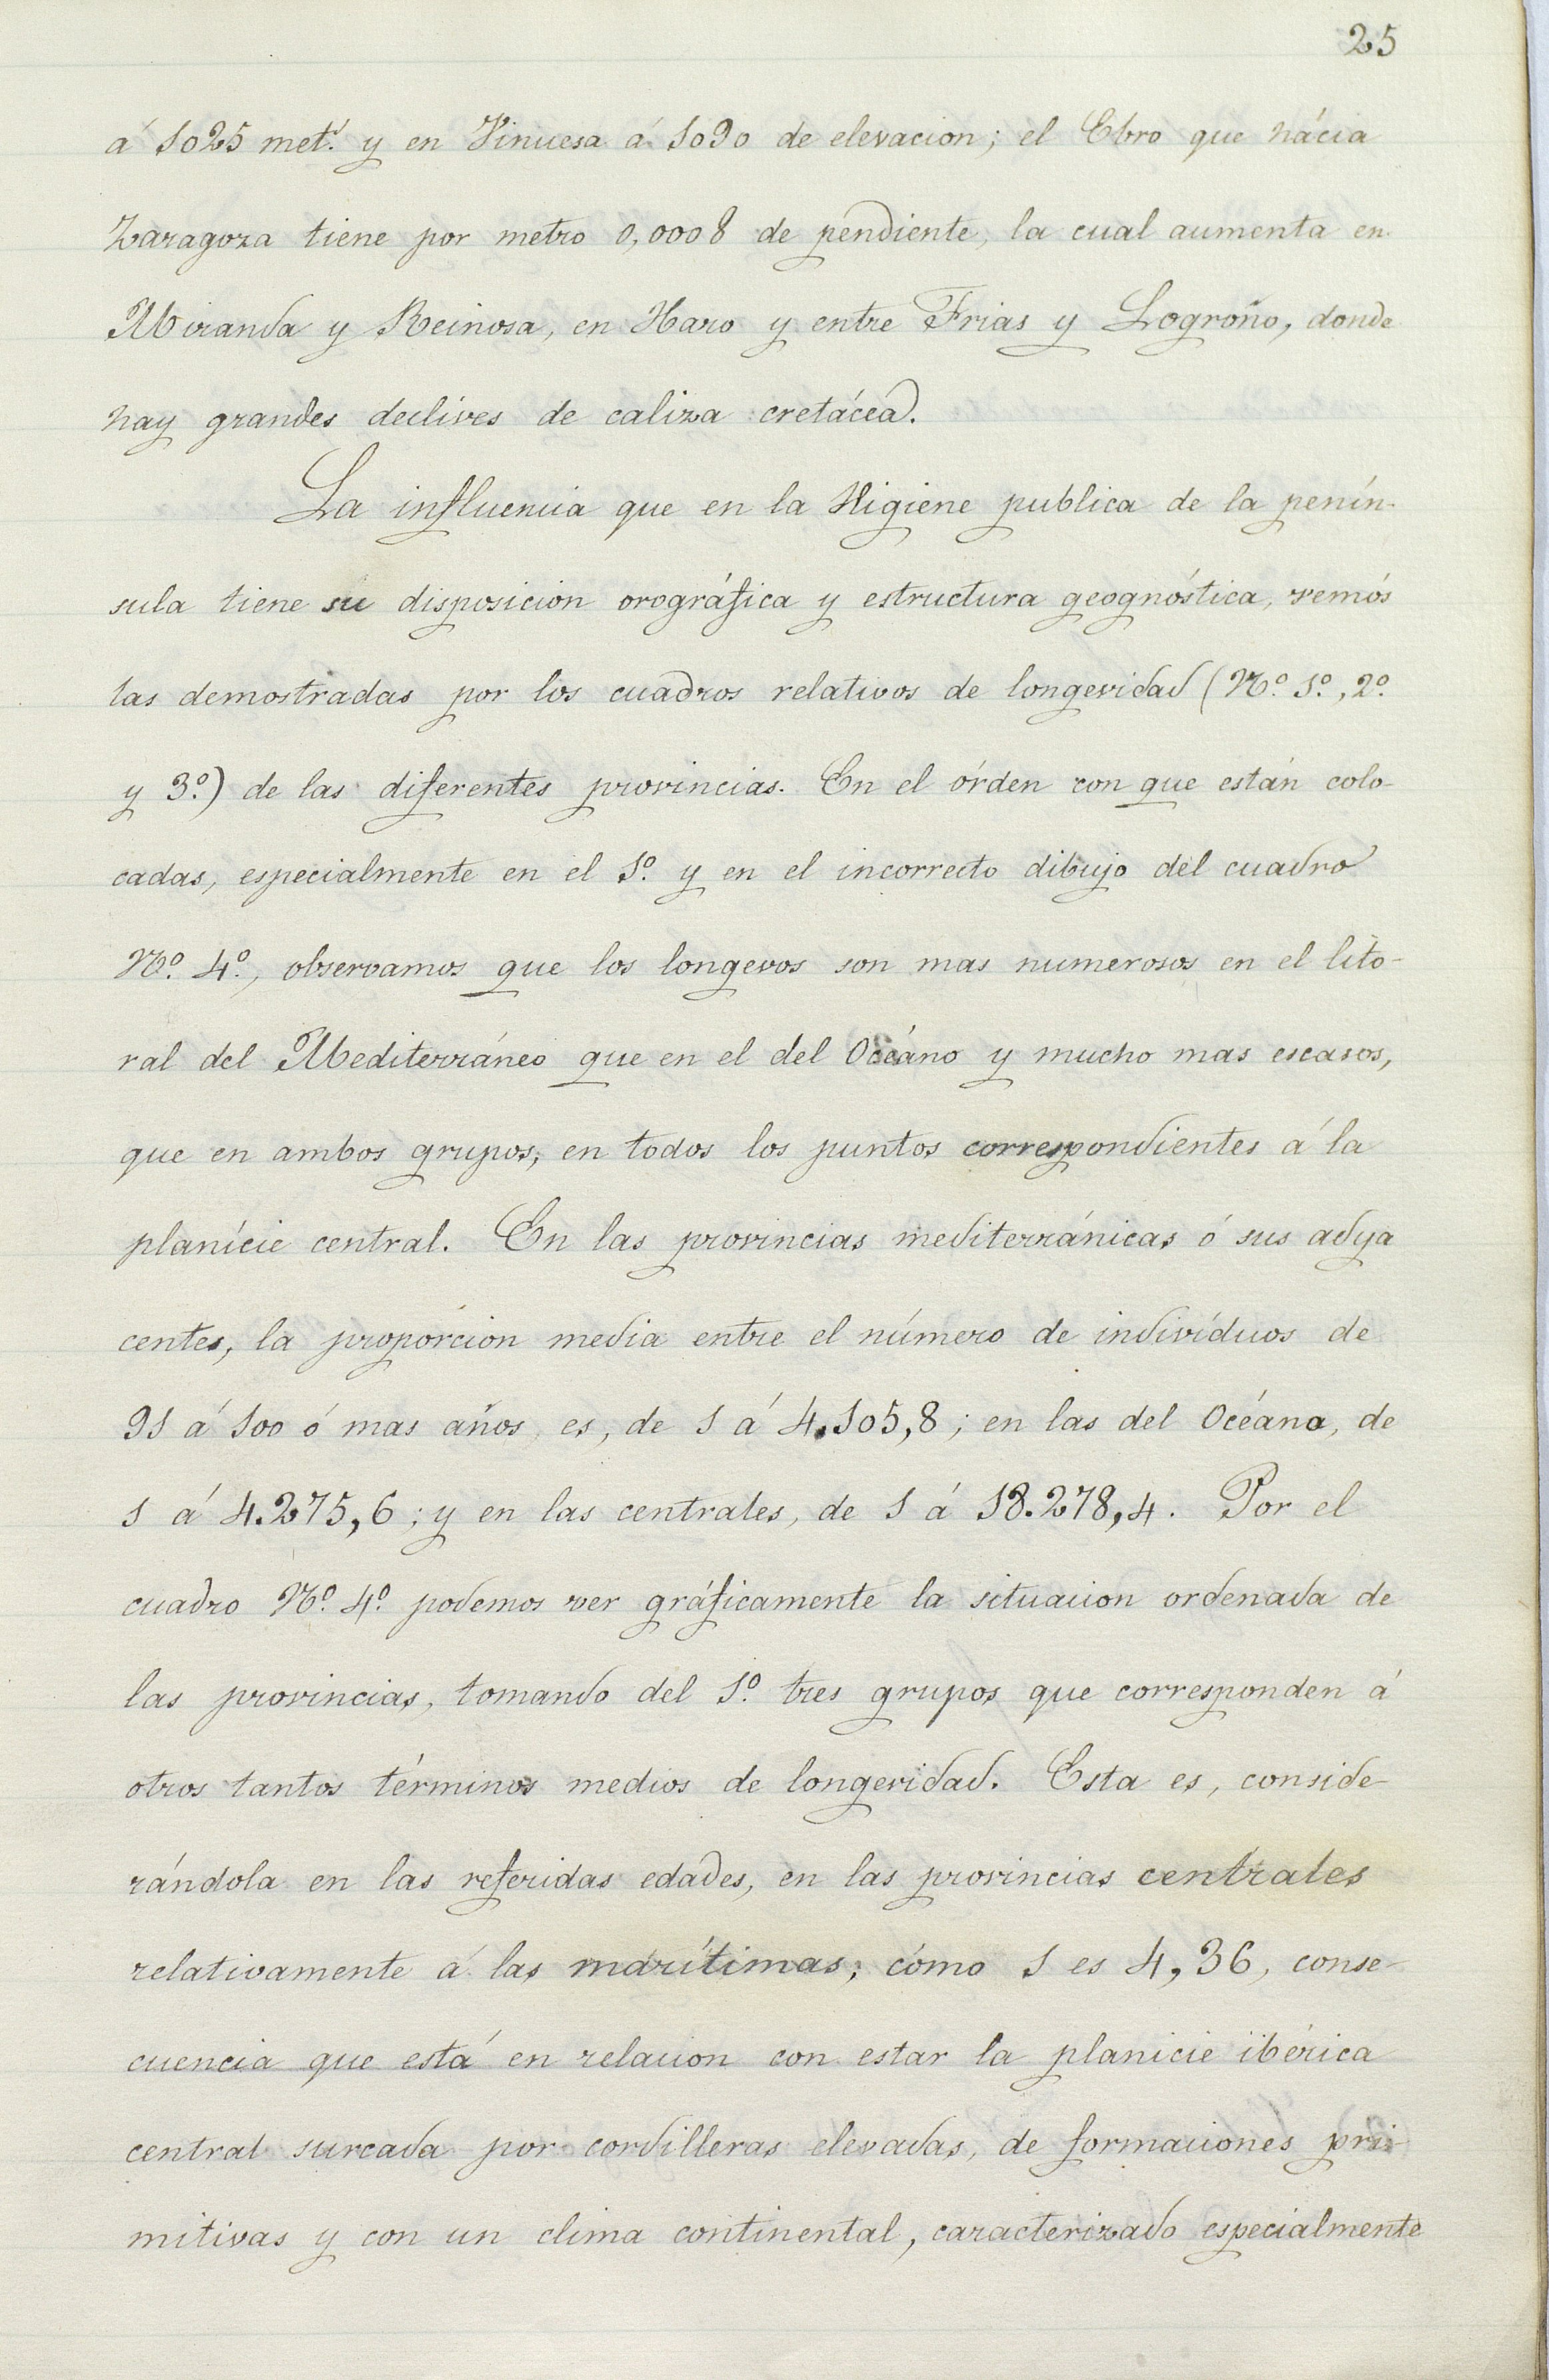 25
á 1025 met.ˢ y en Vinuesa á 1090 de elevacion; el Ebro que hácia
Zaragoza tiene por metro 0,0008 de pendiente, la cual aumenta en
Miranda y Reinosa, en Haro y entre Frias y Logroño, donde
hay grandes declives de caliza cretácea.
La influencia que en la Higiene publica de la penín-
sula tiene su disposicion orográfica y estructura geognóstica, vemós
las demostradas por los cuadros relativos de longevidad (Nº. 1º., 2º.
y 3º.) de las diferentes provincias. En el órden con que están colo-
cadas, especialmente en el 1º. y en el incorrecto dibujo del cuadro
Nº. 4º., observamos que los longevos son mas numerosos en el lito-
ral del Mediterráneo que en el del Océano y mucho mas escasos,
que en ambos grupos, en todos los puntos correspondientes á la
planície central. En las provincias mediterránicas ó sus adya
centes, la proporcion media entre el número de indivíduos de
91 á 100 ó mas años, es, de 1 á 4.105,8; en las del Océano, de
1 á 4.275,6; y en las centrales, de 1 á 18.278,4. Por el
cuadro Nº. 4º. podemos ver gráficamente la situacion ordenada de
las provincias, tomando del 1º. tres grupos que corresponden á
otros tantos términos medios de longevidad. Esta es, conside-
rándola en las referidas edades, en las provincias centrales
relativamente á las marítimas; cómo 1 es 4,36, conse-
cuencia que está en relacion con estar la planicie ibérica
central surcada por cordilleras elevadas, de formaciones pri-
mitivas y con un clima continental, caracterizado especialmente